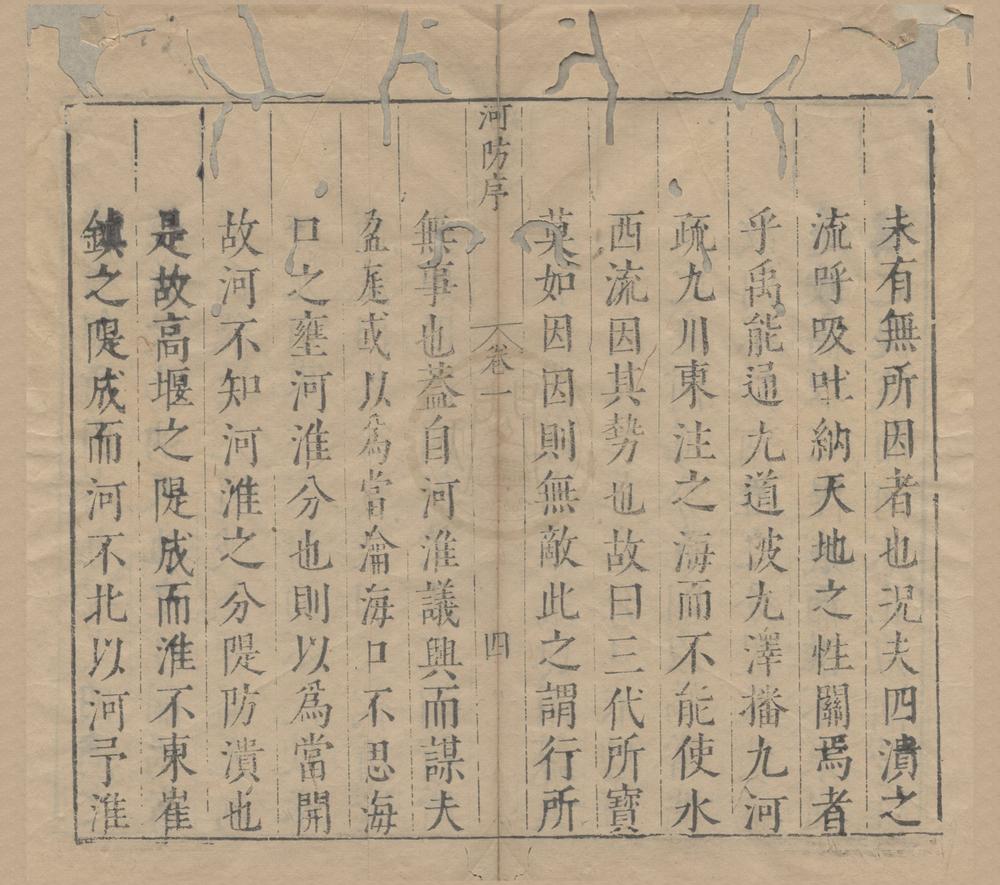 未有無所因者也況夫四瀆之
流呼吸吐納天地之性關焉者
乎禹能通九道波九澤播九河
疏九川東注之海而不能使水
西流因其勢也故曰三代所寶
莫如因因則無敵此之謂行所
河防序
卷一
四
無事也蓋自河淮議興而謀夫
盈庭或以為當瀹海口不思海
口之壅河淮分也則以爲當開
故河不知河淮之分隄防潰也
是故高堰之隄成而淮不東崔
鎮之隄成而河不北以河予淮